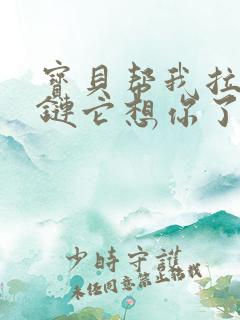 寶貝帮我拉
鏈它想你了
少時守護
未任同意禁止转载